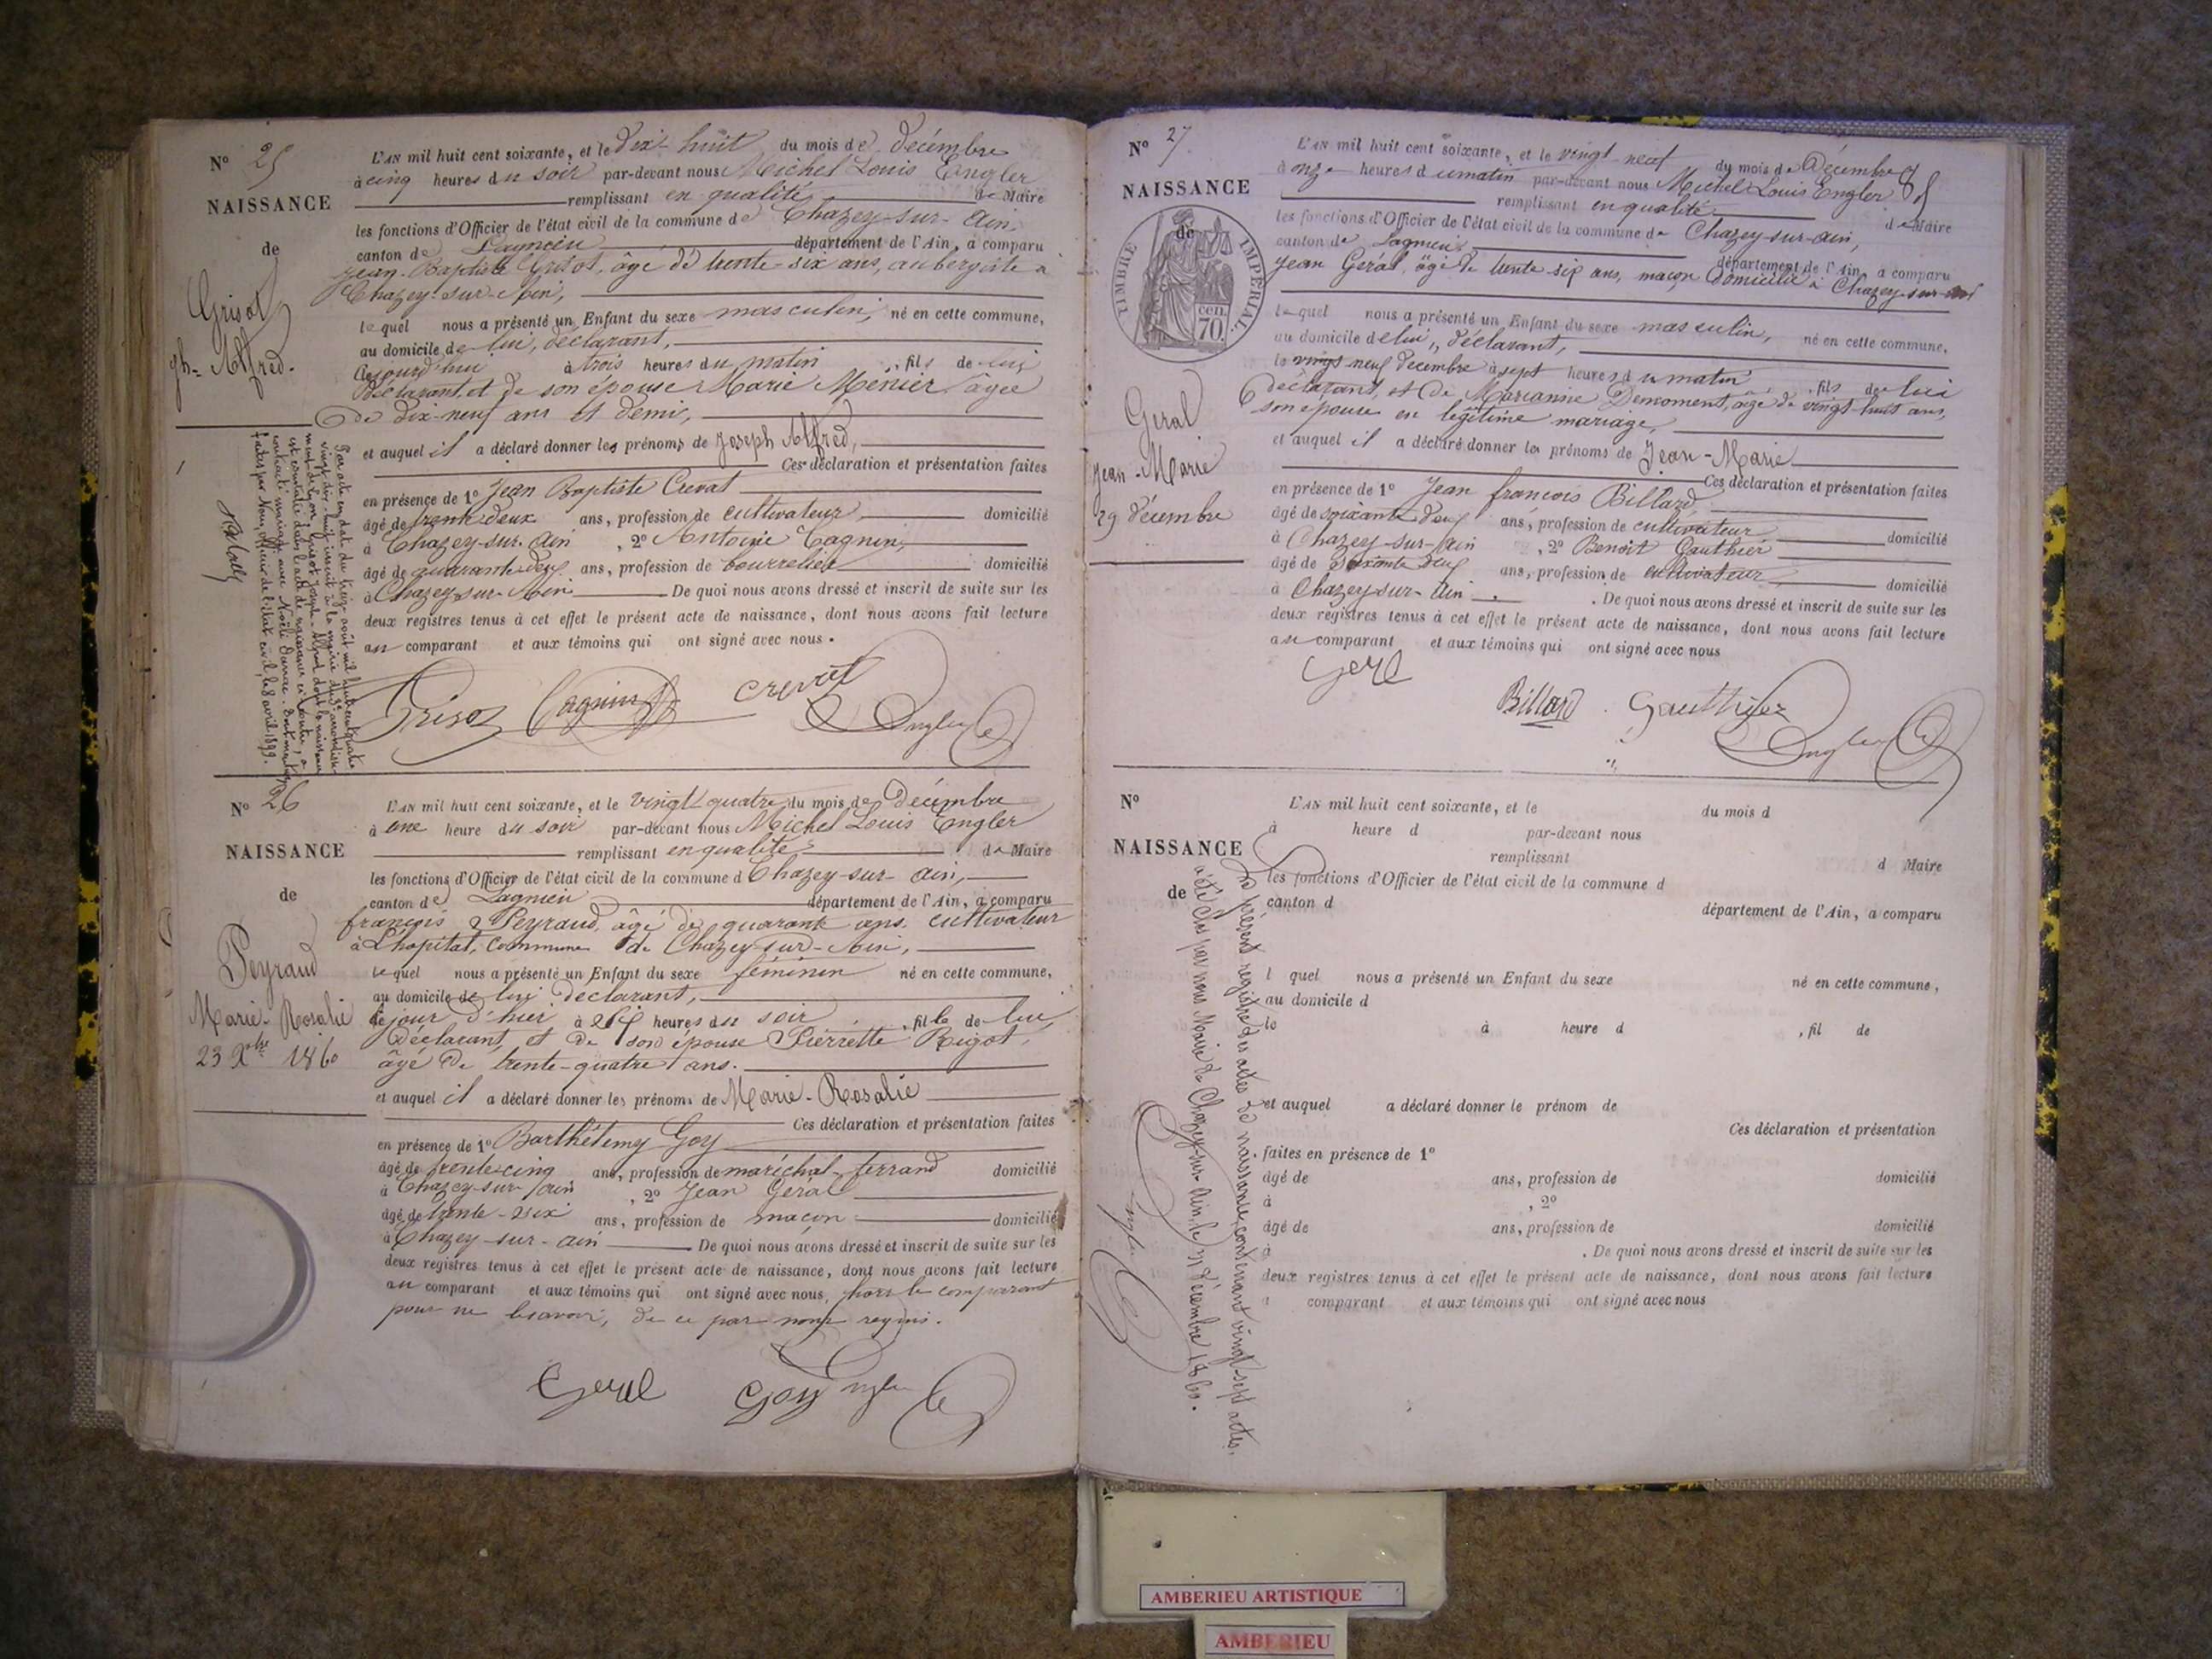 N° 25
NAISSANCE
de
Grisot
Jph- Alfred.
L'AN mil huit cent soixante, et le dix-huit du mois de décembre
à cinq heures du soir par-devant nous Michel Louis Engler
remplissant en qualité de Maire
les fonctions d'Officier de l'état civil de la commune de Chazey-sur-Ain,
canton de Lagnieu département de l'Ain, a comparu
Jean-Baptiste Grisot, âgé de trente-six ans, aubergiste à
Chazey-sur-Ain,
lequel nous a présenté un Enfant du sexe masculin, né en cette commune,
au domicile de lui, déclarant,
aujourd'hui à trois heures du matin, fils de lui
déclarant et de son épouse Marie Menier âgée
de dix-neuf ans et demi,
et auquel il a déclaré donner les prénoms de Joseph Alfred,
Ces déclaration et présentation faites
en présence de 1° Jean Baptiste Crevat
âgé de trente deux ans, profession de cultivateur domicilié
à Chazey-sur-Ain, 2° Antoine Cagnin,
âgé de quarante deux ans, profession de bourrelier domicilié
à Chazey-sur-Ain De quoi nous avons dressé et inscrit de suite sur les
deux registres tenus à cet effet le présent acte de naissance, dont nous avons fait lecture
au comparant et aux témoins qui ont signé avec nous.
Grisot Cagnin Crevat Engler
Par acte en date du treize août mil huit cent quatre
vingt dix-huit inscrit à la mairie du 3e arrondisse-
ment de Lyon, Grisot Joseph-Alfred dont la naissance
est constatée dans l'acte de naissance ci-contre, a
contracté mariage avec Noëlie Dance. Dont mention
faite par Nous, officier de l'état civil, le 8 avril 1899.
N° 26
NAISSANCE
de
Peyraud
Marie-Rosalie
23 Xbre 1860
L'AN mil huit cent soixante, et le vingt quatre du mois de Décembre
à une heure du soir par-devant nous Michel Louis Engler
remplissant en qualité de Maire
les fonctions d'Officier de l'état civil de la commune d Chazey-sur-Ain,
canton de Lagnieu département de l'Ain, a comparu
françois Peyraud, âgé de quarante ans, cultivateur
à L'hopital, Commune de Chazey-sur-Ain,
lequel nous a présenté un Enfant du sexe féminin né en cette commune,
au domicile de lui déclarant,
le jour d'hier à sept heures du soir, fille de lui,
déclarant, et de son épouse Pierrette Rigot,
âgé de trente-quatre ans.
et auquel il a déclaré donner les prénoms de Marie-Rosalie
Ces déclaration et présentation faites
en présence de 1° Barthélemy Goy
âgé de trente-cinq ans, profession de maréchal-ferrand domicilié
à Chazey-sur-Ain, 2° Jean Géral
âgé de trente-six ans, profession de maçon domicilié
à Chazey-sur-Ain De quoi nous avons dressé et inscrit de suite sur les
deux registres tenus à cet effet le présent acte de naissance, dont nous avons fait lecture
au comparant et aux témoins qui ont signé avec nous, hors le comparant
pour ne le savoir, de ce par nous requis.
Geral Goy Engler
N° 27
NAISSANCE
de
TIMBRE IMPÉRIAL
CEN. 70.
Geral
Jean-Marie
29 décembre
L'AN mil huit cent soixante, et le vingt neuf du mois de Décembre
à onze heures du matin par-devant nous Michel Louis Engler
remplissant en qualité de Maire
les fonctions d'Officier de l'état civil de la commune de Chazey-sur-Ain,
canton de Lagnieu département de l'Ain, a comparu
Jean Geral, âgé de trente six ans, maçon domicilié à Chazey-sur-Ain
lequel nous a présenté un Enfant du sexe masculin, né en cette commune,
au domicile de lui, déclarant,
le vingt neuf décembre à sept heures du matin, fils de lui
déclarant, et de Marianne Demoment, âgé de vingt-huit ans,
son épouse en légitime mariage,
et auquel il a déclaré donner les prénoms de Jean-Marie
Ces déclaration et présentation faites
en présence de 1° Jean françois Billard
âgé de soixante deux ans, profession de cultivateur domicilié
à Chazey-sur-Ain, 2° Benoît Gauthier
âgé de soixante deux ans, profession de cultivateur domicilié
à Chazey-sur-Ain. De quoi nous avons dressé et inscrit de suite sur les
deux registres tenus à cet effet le présent acte de naissance, dont nous avons fait lecture
au comparant et aux témoins qui ont signé avec nous
Gerl
Billard Gauthier Engler
N°
NAISSANCE
de
L'AN mil huit cent soixante, et le du mois d
à heure d par-devant nous
remplissant d Maire
les fonctions d'Officier de l'état civil de la commune d
canton d département de l'Ain, a comparu
l quel nous a présenté un Enfant du sexe né en cette commune,
au domicile d
le à heure d , fil de
et auquel a déclaré donner le prénom de
Ces déclaration et présentation
faites en présence de 1°
âgé de ans, profession de domicilié
à , 2°
âgé de ans, profession de domicilié
à . De quoi nous avons dressé et inscrit de suite sur les
deux registres tenus à cet effet le présent acte de naissance, dont nous avons fait lecture
a comparant et aux témoins qui ont signé avec nous
Le présent registre des actes de naissance, contenant vingt-sept actes,
a été clos par nous Maire de Chazey-sur-Ain, le 31 décembre 1860.
Engler
AMBERIEU ARTISTIQUE
AMBERIEU